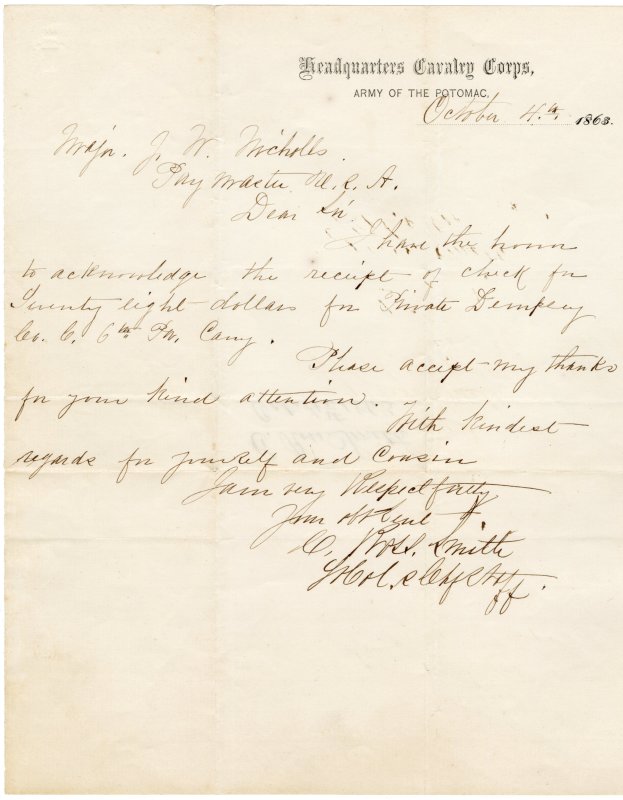 Headquarters Cavalry Corps,
ARMY OF THE POTOMAC,
October 4th. 1863.
Major. J. W. Nicholls.
Pay Master U. S. A.
Dear Sir.
I have the honor
to acknowledge the receipt of check for
Seventy eight dollars for Private Dempsey
Co. C. 6th Pa. Cavy.
Please accept my thanks
for your kind attention.
With kindest
regards for yourself and Cousin
I am very Respectfully
Your obt Servt
C. Ross. Smith
Lt Col. & Chf Staff.